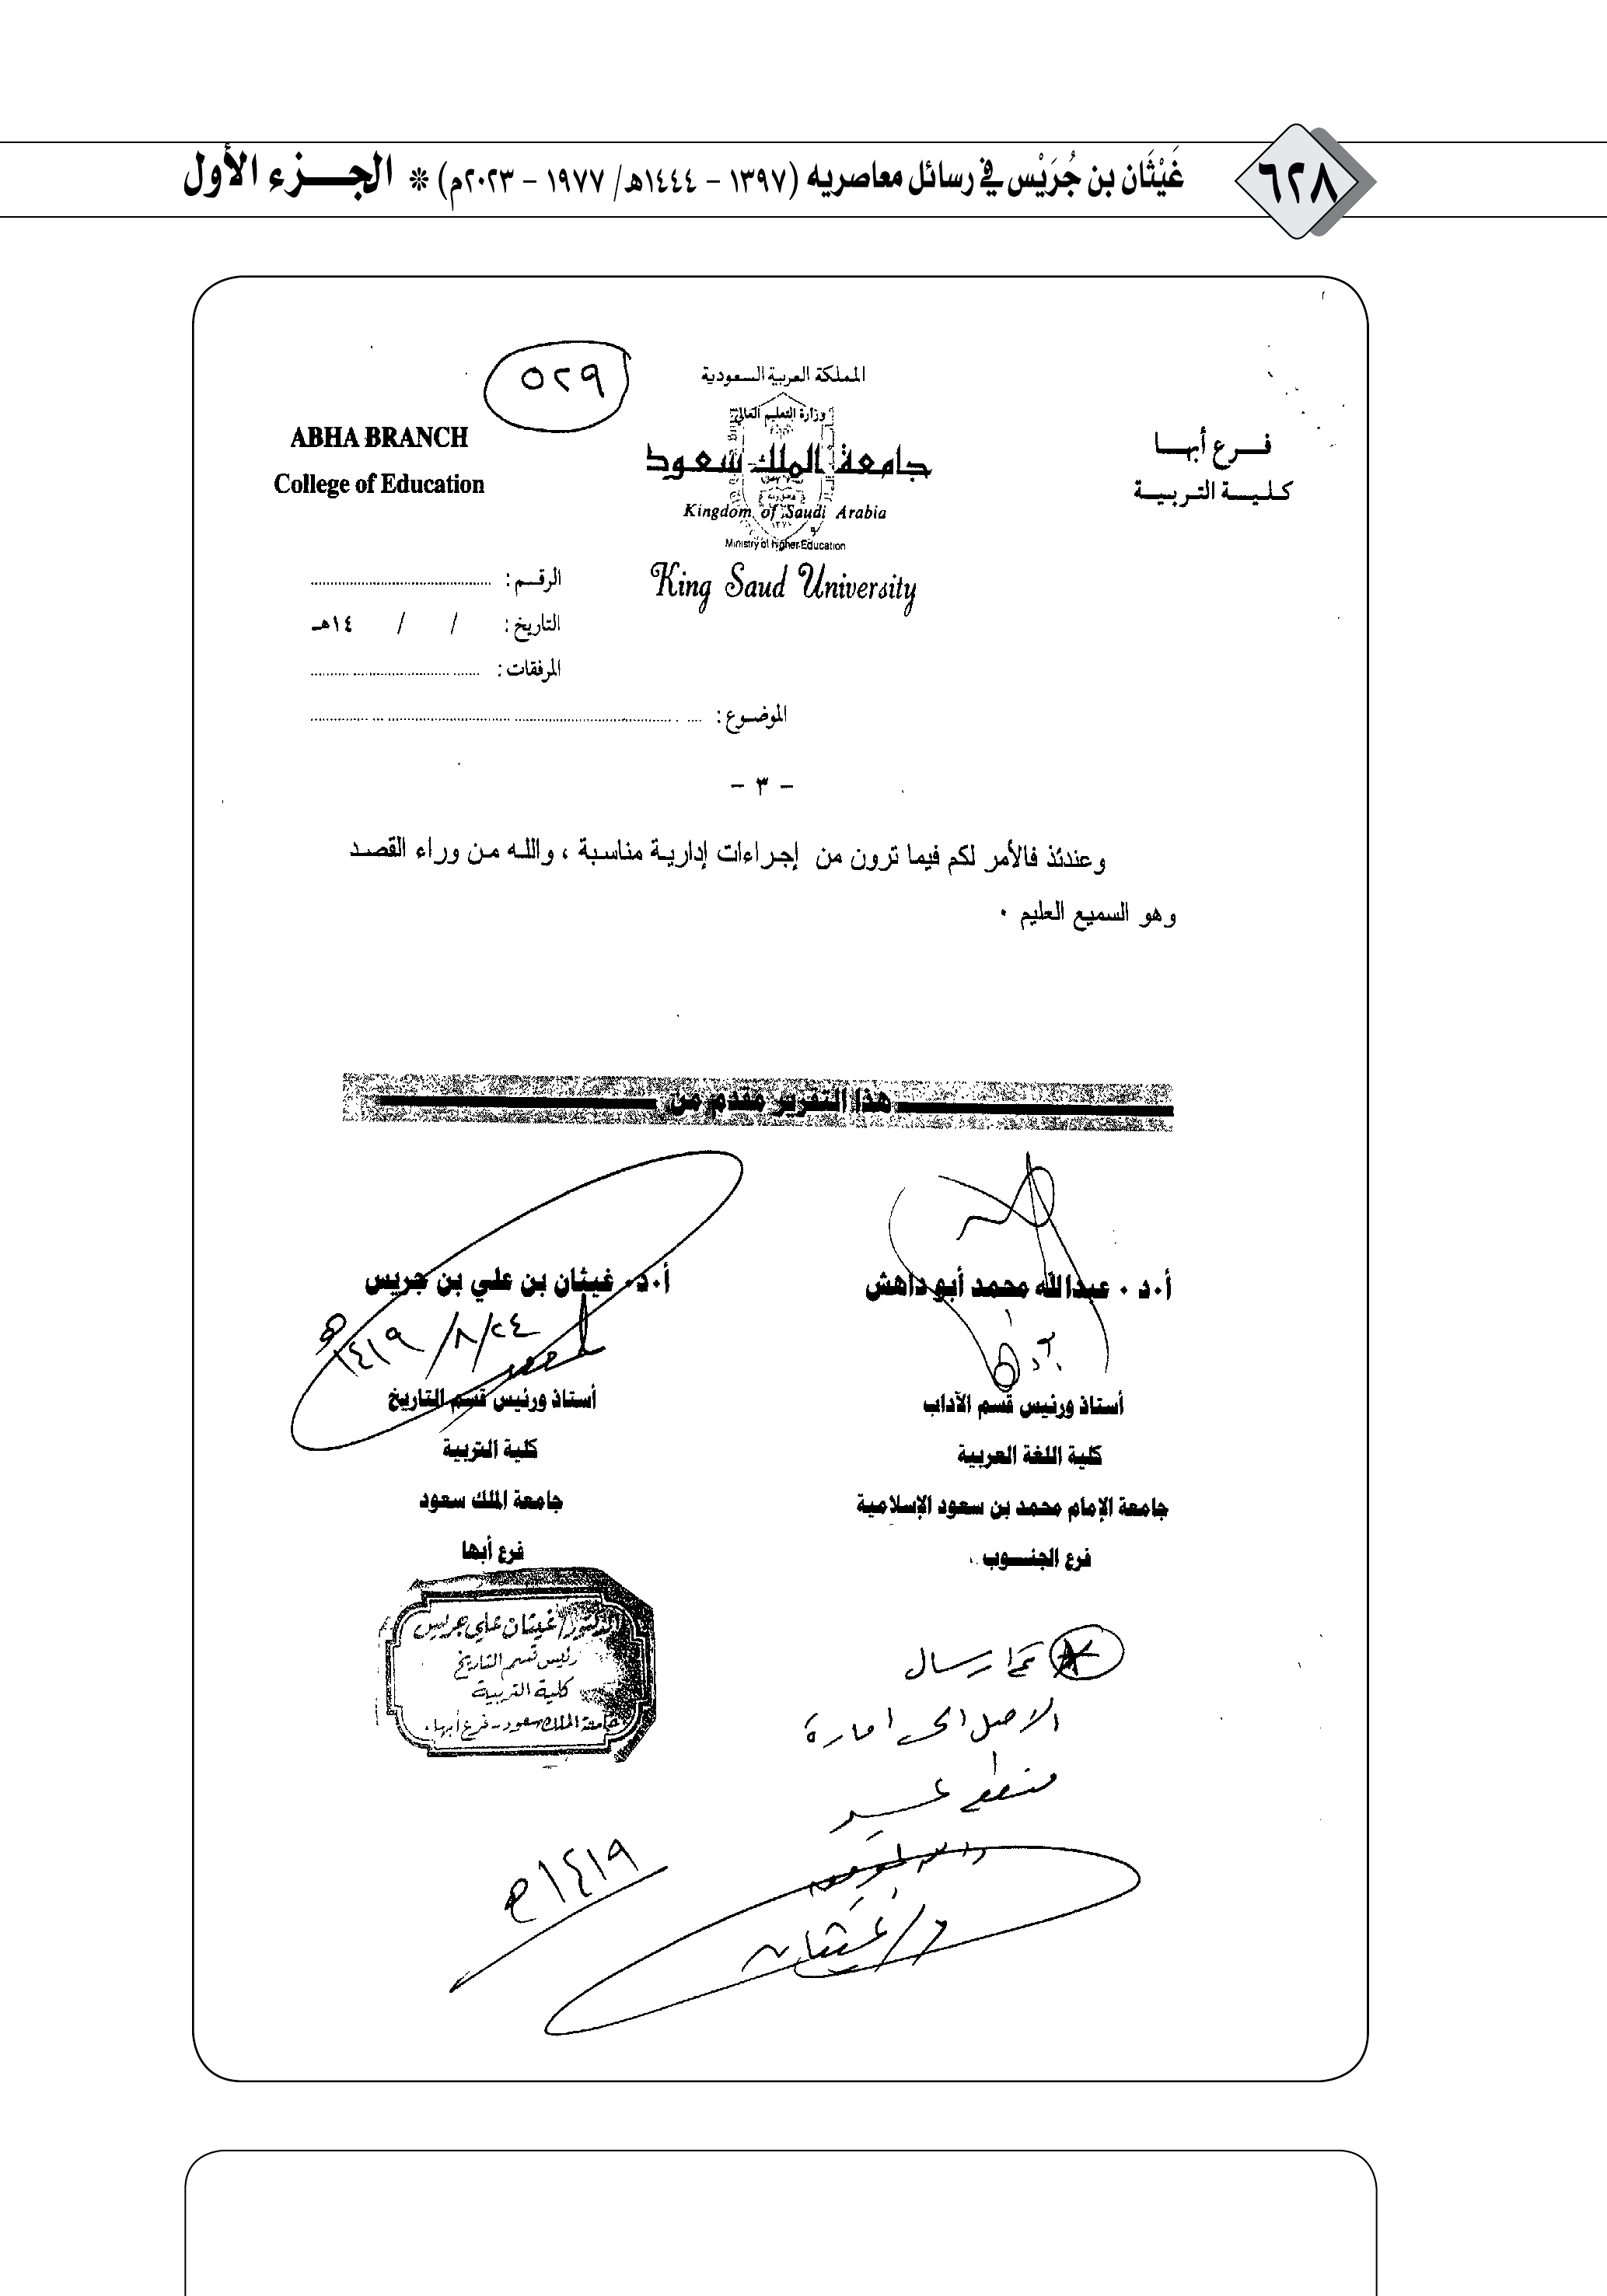 ٦٢٨
غَيْثَان بن جُرَيْس في رسائل معاصريه (١٣٩٧ - ١٤٤٤هـ/ ١٩٧٧ - ٢٠٢٣م) * الجـــزء الأول
٥٢٩
المملكة العربية السعودية
وزارة التعليم العالي
جامعة الملك سعود
Kingdom of Saudi Arabia
Ministry of Higher Education
King Saud University
فـــرع أبهــا
كـلـيـــة التـربـيـــة
ABHA BRANCH
College of Education
الرقــم : ..............................
التاريخ : / / ١٤هـ
المرفقات : ..............................
الموضـوع : ..............................
- ٣ -
وعندئذ فالأمر لكم فيما ترون من إجـراءات إداريـة مناسـبة ، واللـه مـن وراء القصـد
وهو السميع العليم ٠
هذا التقرير مقدم من
أ٠د ٠ عبدالله محمد أبو داهش
أستاذ ورئيس قسم الآداب
كلية اللغة العربية
جامعة الإمام محمد بن سعود الإسلامية
فرع الجنـــوب
أ٠د٠ غيثان بن علي بن جريس
٢٤/٨/١٤١٩هـ
أستاذ ورئيس قسم التاريخ
كلية التربية
جامعة الملك سعود
فرع أبها
الدكتور/ غيثان علي جريس
رئيس قسم التاريخ
كلية التربية
جامعة الملك سعود - فرع أبها .
* تم ارسال
الاصل الى امارة
منطقة عسير
والله الموفق
د/ غيثان
١٤١٩هـ